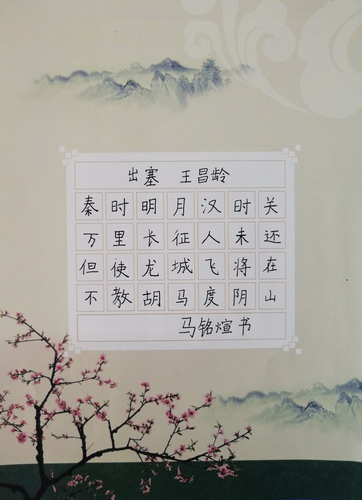 出塞 王昌龄
秦时明月汉时关
万里长征人未还
但使龙城飞将在
不教胡马度阴山
马铭煊书